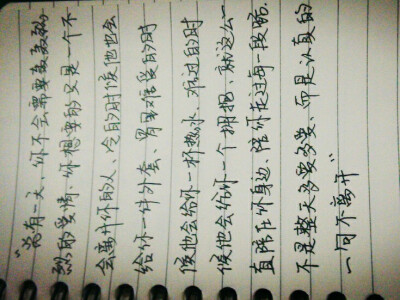 “总有一天、你不会需要轰轰烈
烈的爱情、你想要的只是一个不
会离开你的人、冷的时候他也会
给你一件外套、胃里难受的时
候他会给你一杯热水、难过的时
候他会给你一个拥抱、就这么一
直陪在你身边、陪你走过每一段路.
不是整天多爱多爱、而是认真的
一句不离开”